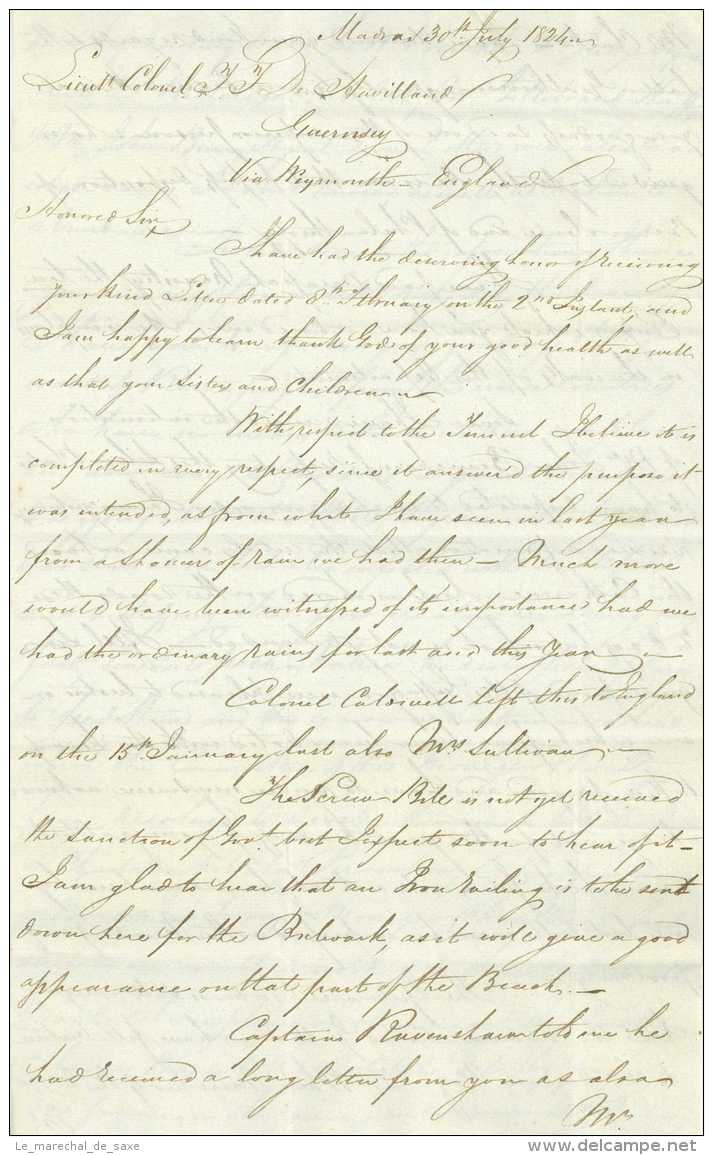 Madras 30th July 1824
Lieutt Colonel T. F. De Havilland
Guernsey
Via Weymouth - England
Honored Sir,
I have had the deserving honor of receiving
your kind Letter dated 8th February on the 2nd Instant, and
I am happy to learn thank God of your good health as well
as that your Sister and Children
With respect to the Tunnel I believe it is
completed in every respect, since it answer'd the purpose it
was intended, as from what I have seen in last year
from a shower of rain we had then - Much more
would have been witnessed of its importance had we
had the ordinary rains for last and this Year
Colonel Caldwell left this to England
on the 15th January last also Mrs Sullivan
The Screw Bill is not yet received
the sanction of Govt. but I expect soon to hear of it -
I am glad to hear that an Iron railing is to be sent
down here for the Bulwark, as it will give a good
appearance on that part of the Beach. -
Captain Ravenshaw told me he
had received a long letter from you as also
Mr
Le_marechal_de_saxe
www.delcampe.net